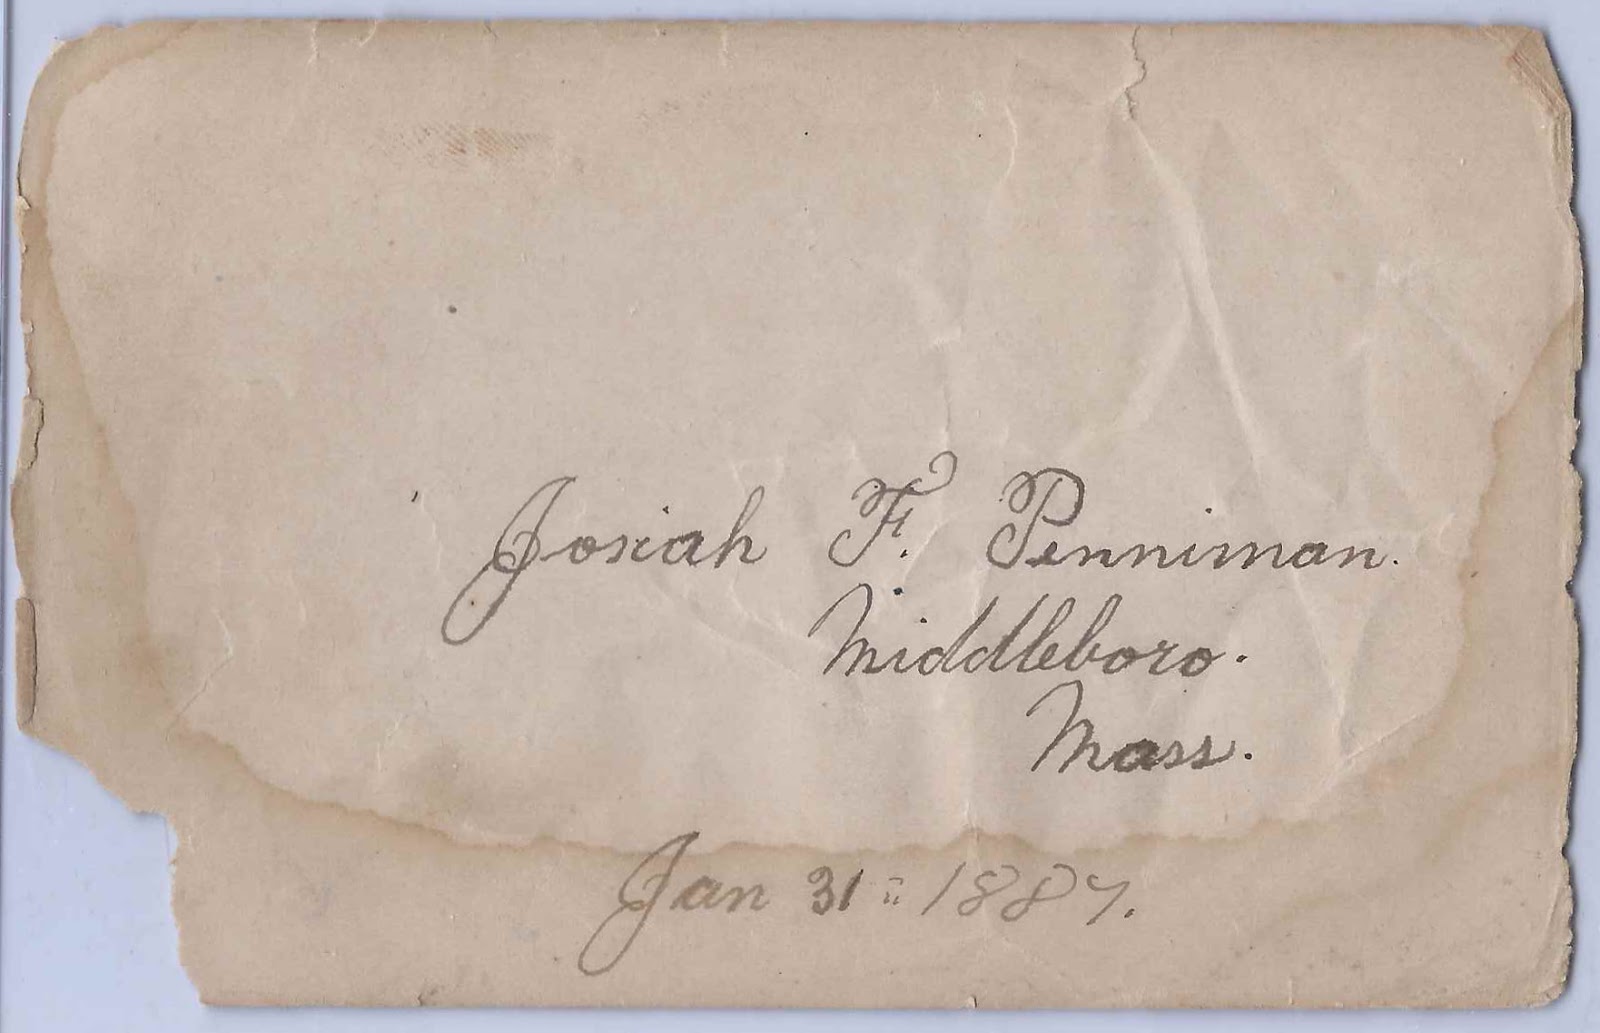 Josiah F. Penniman.
Middleboro.
Mass.
Jan 31 = 1887.